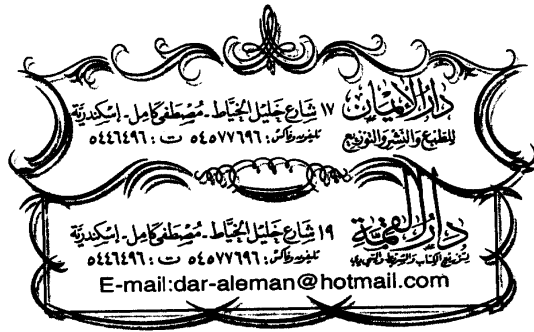 دار الإيمان
للطبع والنشر والتوزيع
١٧ شارع خليل الخياط ـ مصطفى كامل ـ إسكندرية
تليفون وفاكس: ٥٤٥٧٧٦٩٦ ت: ٥٤٤٦٤٩٦
دار القمة
لتوزيع الكتاب والشريط الإسلامي
١٩ شارع خليل الخياط ـ مصطفى كامل ـ إسكندرية
تليفون وفاكس: ٥٤٥٧٧٦٩٦ ت: ٥٤٤٦٤٩٦
E-mail:dar-aleman@hotmail.com